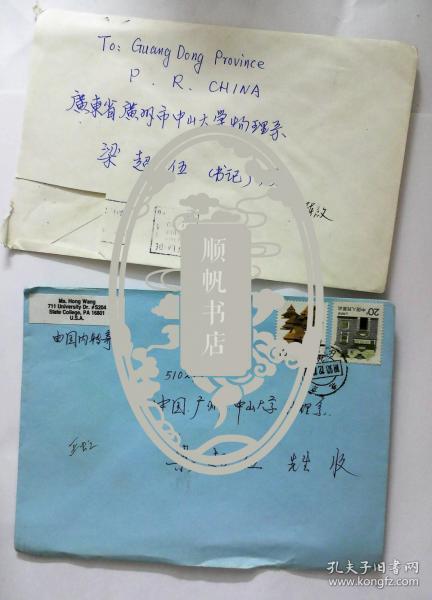 To: Guang Dong Province
P. R. CHINA
廣東省廣州市中山大学物理系
梁超伍(书记)
顺帆书店
Ms. Hong Wang
711 University Dr. #S204
State College, PA 16801
U.S.A.
由国内转寄
20分 中国人民邮政
510
中国.广州.中山大学 理系.
先生 收
孔夫子旧书网
www.kongfz.com